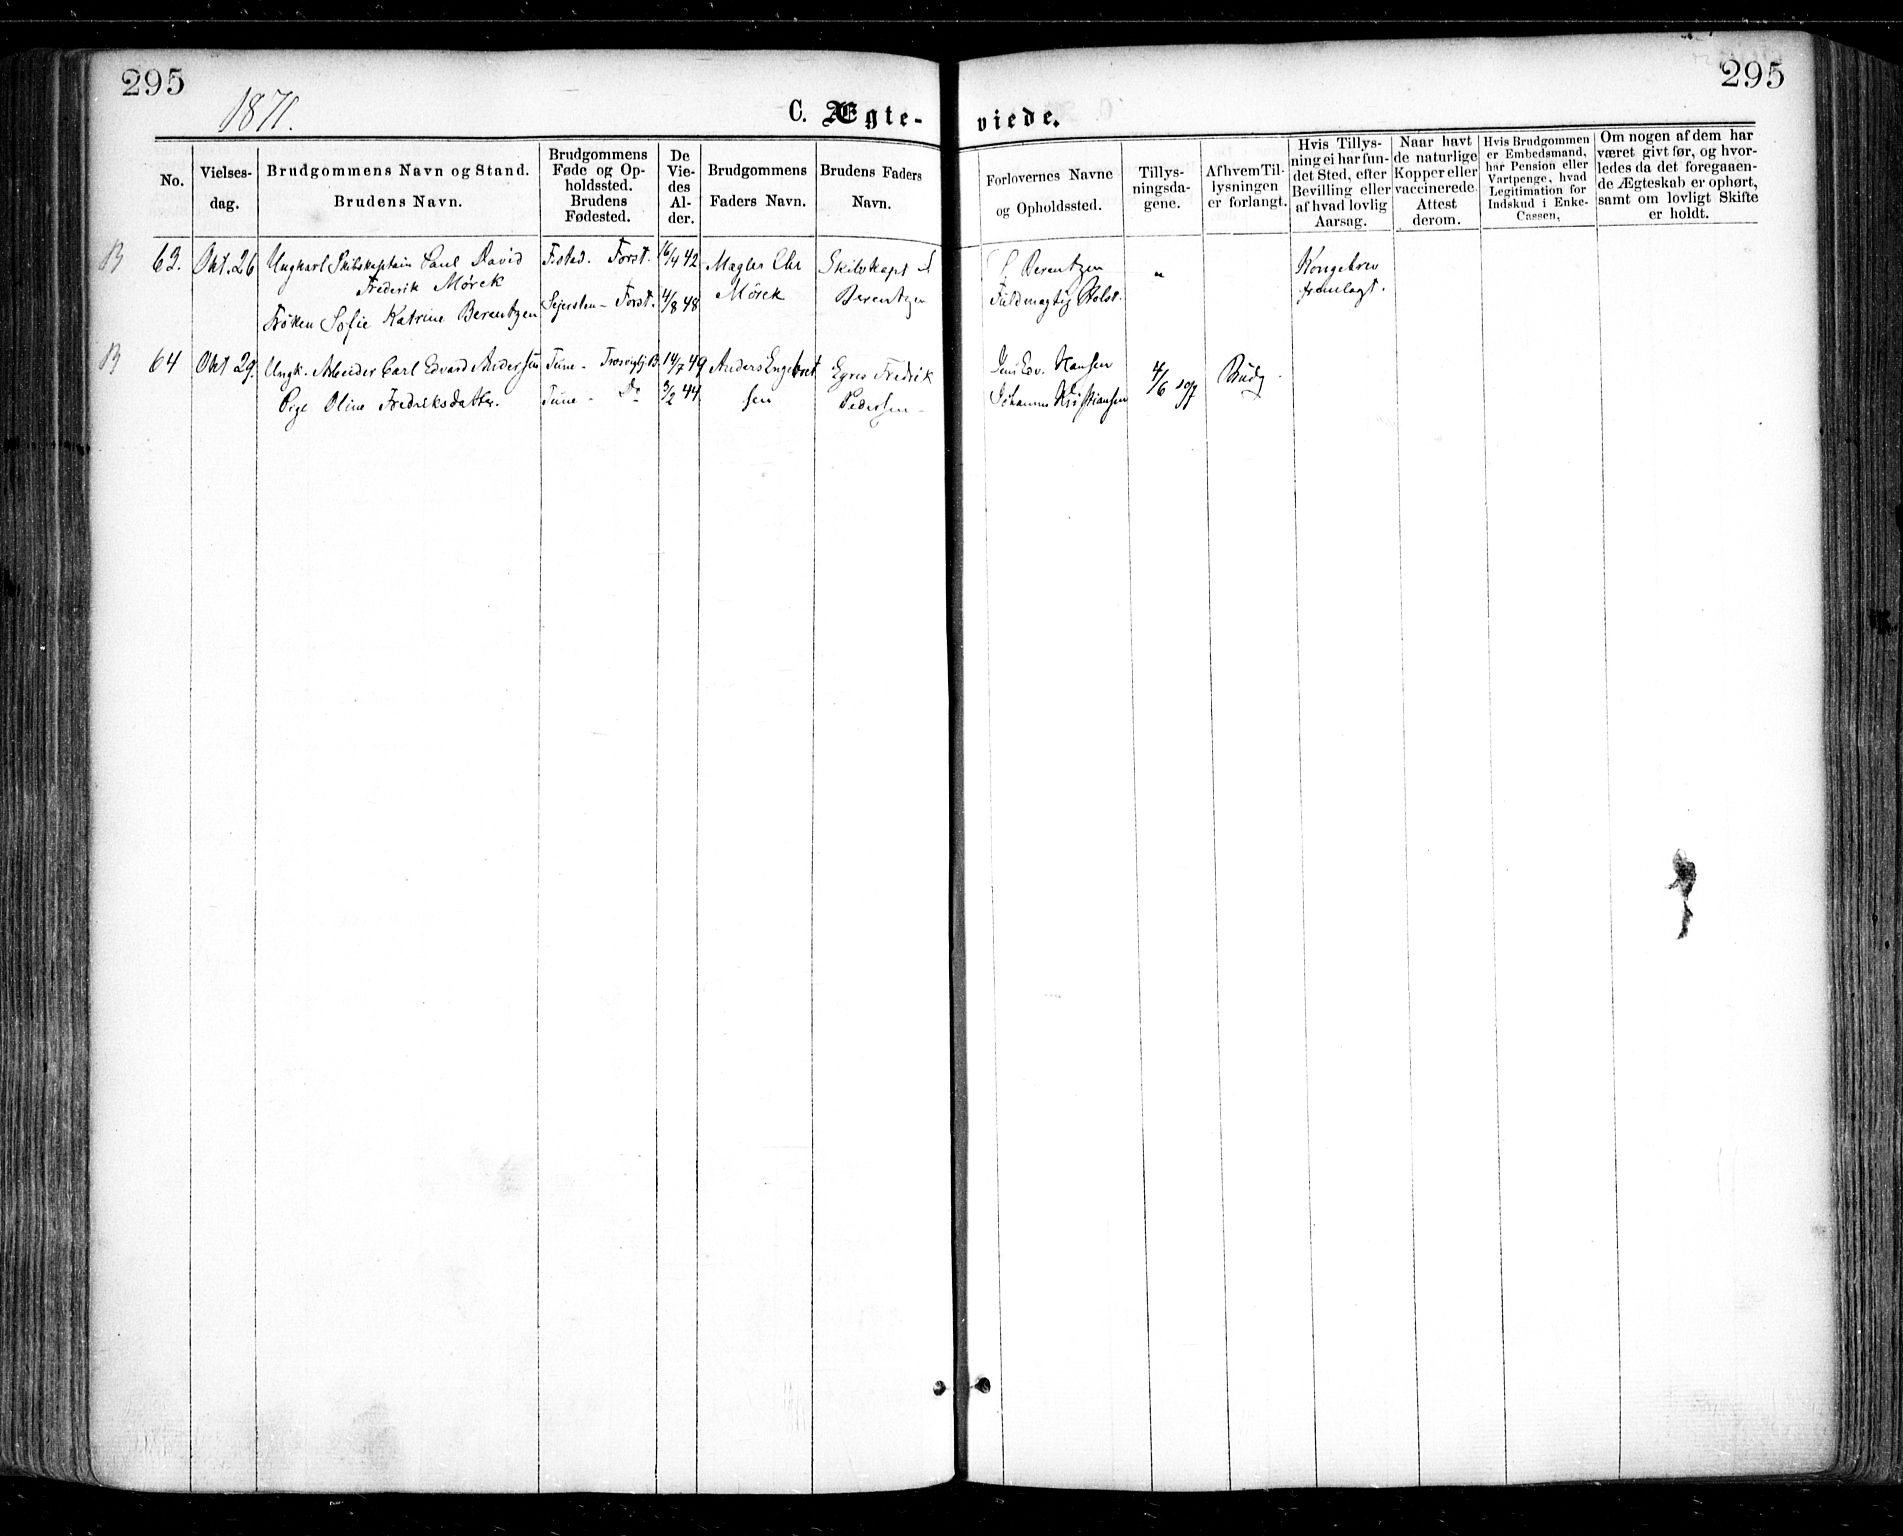 295
295
1871.
C. Ægte-
viede.
No.
Vielses-
dag.
Brudgommens Navn og Stand.
Brudens Navn.
Brudgommens
Føde og Op-
holdssted.
Brudens
Fødested.
De
Vie-
des
Al-
der.
Brudgommens
Faders Navn.
Brudens Faders
Navn.
Forlovernes Navne
og Opholdssted.
Tillys-
ningsda-
gene.
Af hvem Til-
lysningen
er forlangt.
Hvis Tillys-
ning ei har fun-
det Sted, efter
Bevilling eller
af hvad lovlig
Aarsag.
Naar havt
de naturlige
Kopper eller
vaccinerede.
Attest
derom.
Hvis Brudgommen
er Embedsmand,
har Pension eller
Vartpenge, hvad
Legitimation for
Indskud i Enke-
Cassen.
Om nogen af dem har
været givt før, og hvor-
ledes da det foregaaen-
de Ægteskab er ophørt,
samt om lovligt Skifte
er holdt.
B 63. Okt. 26 Ungkarl Skibskaptain Carl David
Frederik Mørck
Frøken Sofie Katrine Berentzen
F.stad. Forst.
Sejersten - Forst.
16/4 42
4/8 48
Mægler Chr
Mørck
Skibskapt
Berentzen
Berentzen
Fuldmægtig Holst.
"
Kongebrev
fremlagt.
B 64 Okt 29. Ungk. Arbeider Carl Edvard Andersen
Pige Oline Fredriksdatter.
Tune - B.
Tune - Do
14/7 49
3/2 44
Anders Engebret
sen
Fredrik
Pedersen
Hansen
Johannes Kristiansen
4/6
Brudg.